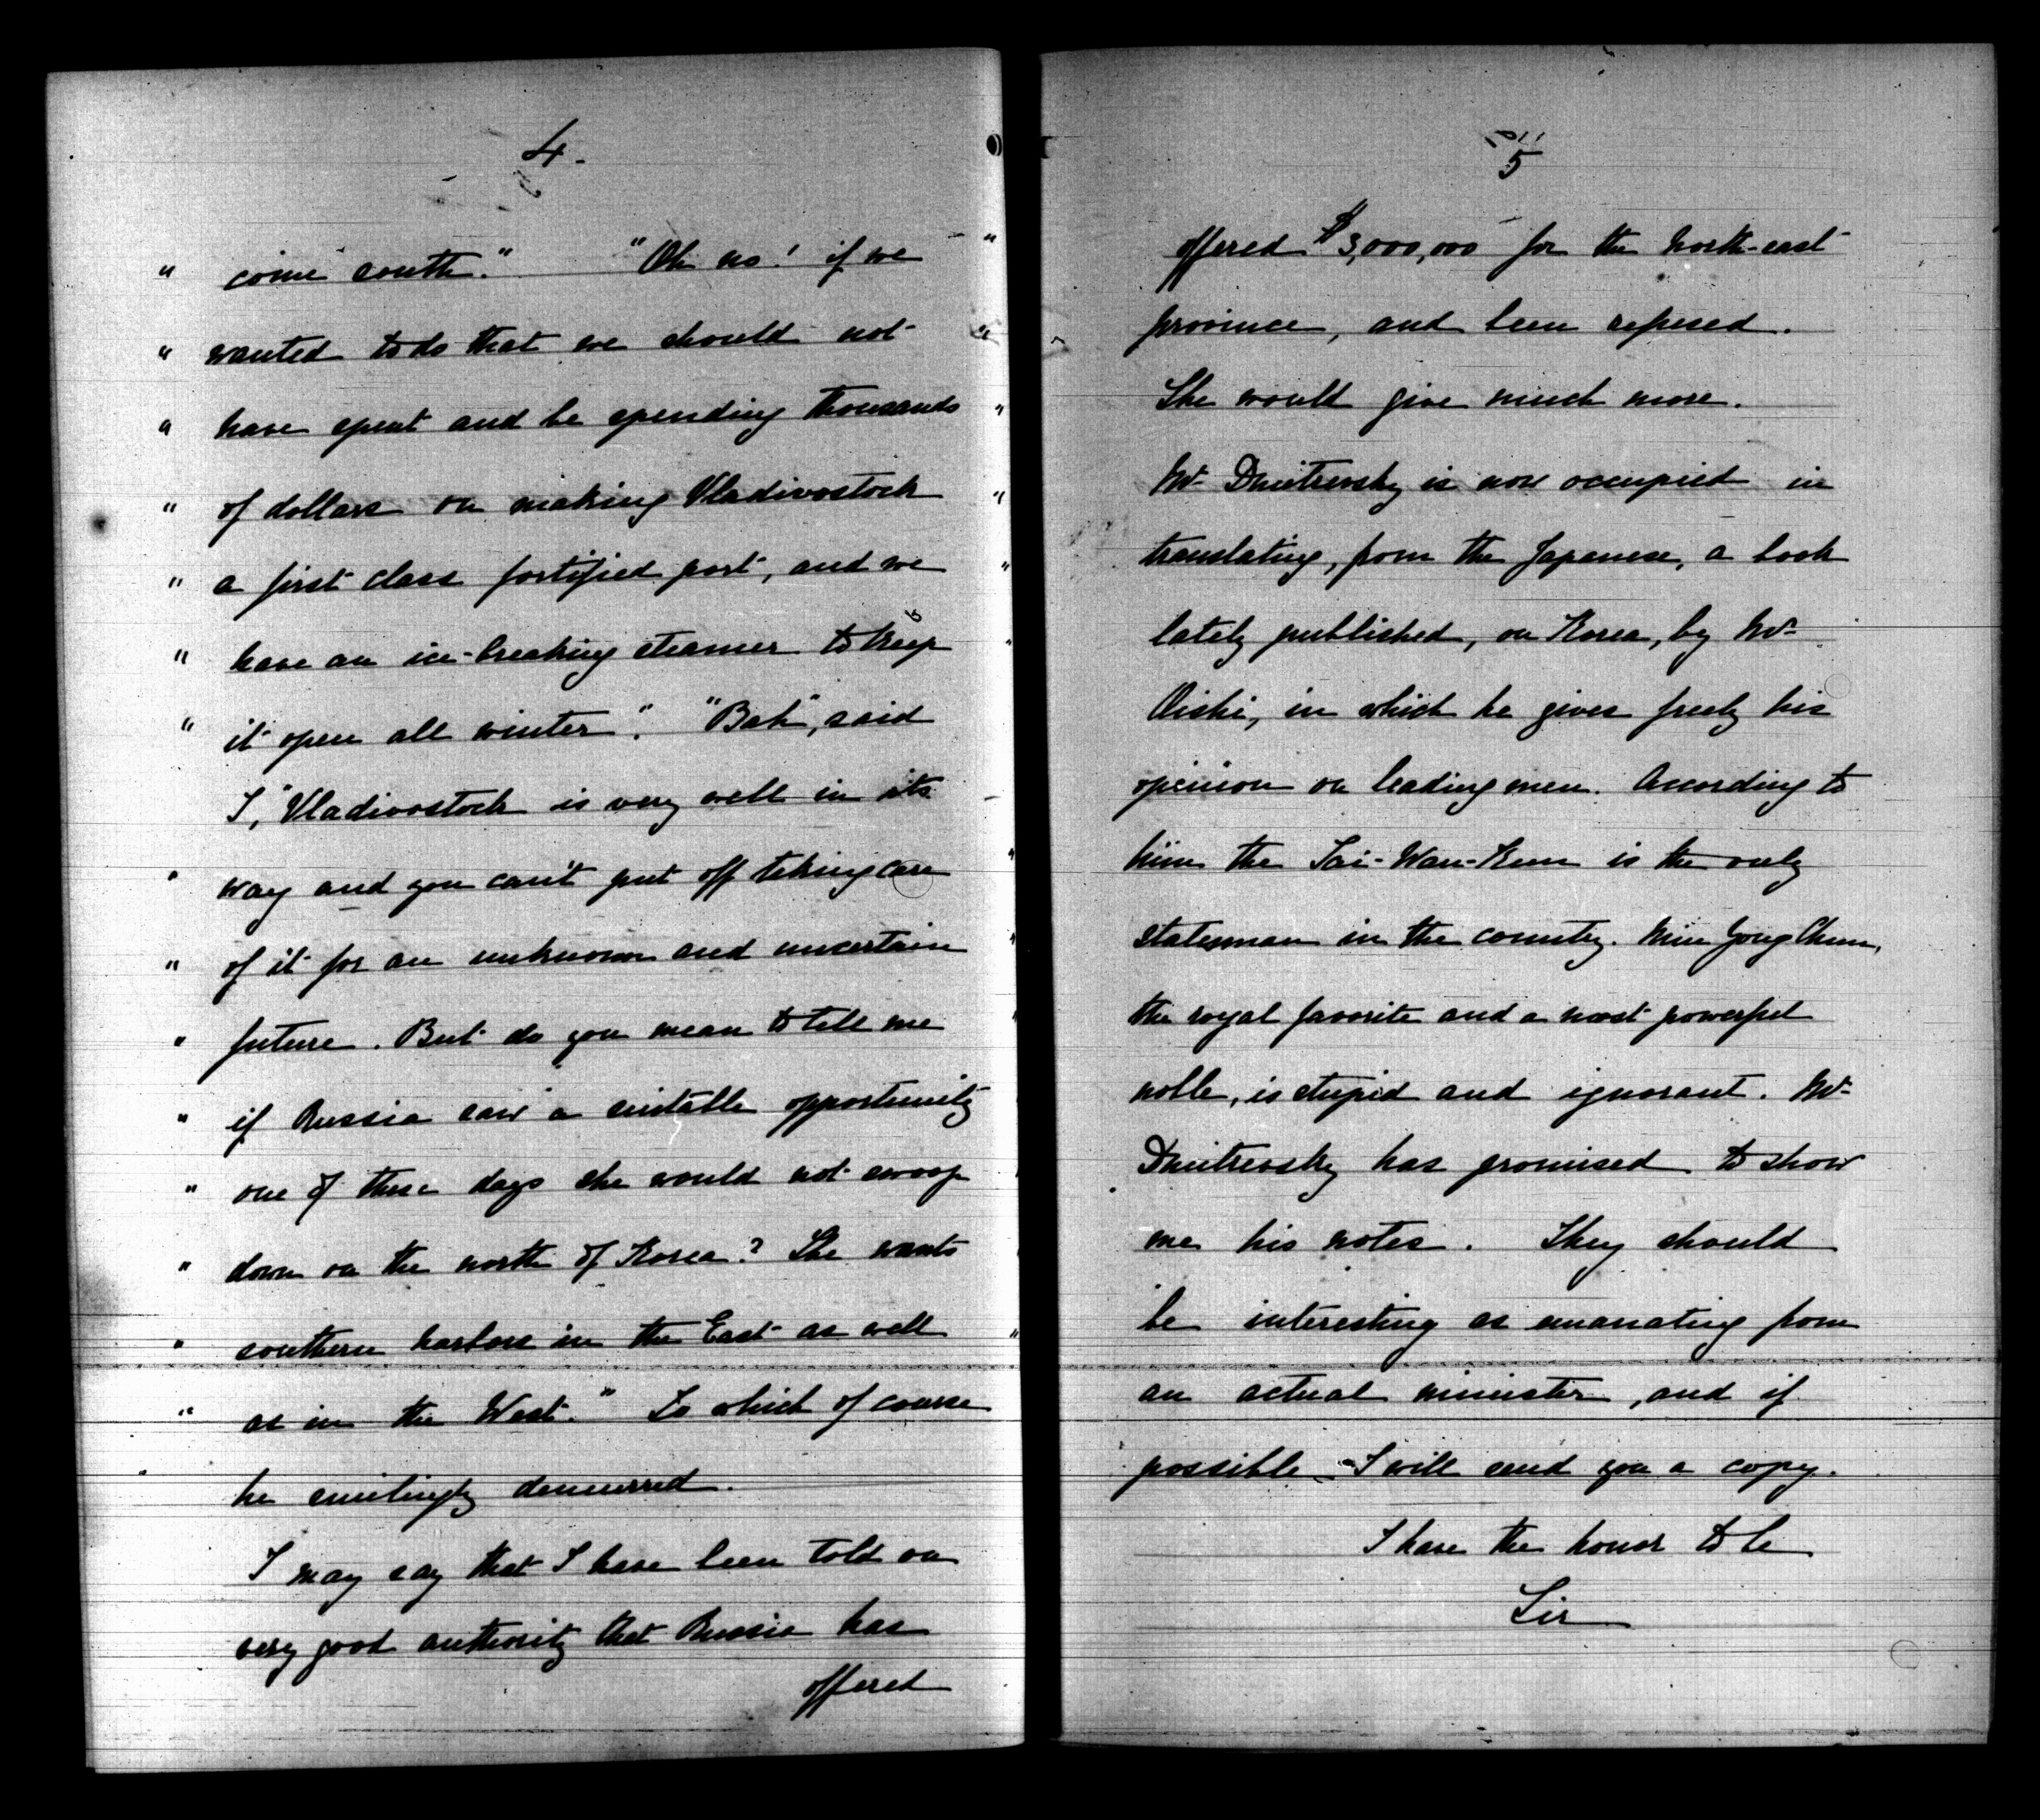 4.
" come south." "Oh no! if we "
" wanted to do that we should not "
" have spent and be spending thousands "
" of dollars on making Vladivostock "
" a first class fortified port, and we "
" have an ice-breaking steamer to keep "
" it open all winter". "Bah", said
I, "Vladivostock is very well in its
" way and you can't put off taking care "
" of it for an unknown and uncertain "
" future. But do you mean to tell me "
" if Russia saw a suitable opportunity
" one of these days she would not swoop
" down on the north of Korea? She wants
" southern harbors in the East as well "
" as in the West." To which of course
he smilingly demurred.
I may say that I have been told on
very good authority that Russia has
offered
5
offered $3,000,000 for the North-east
province, and been refused.
She would give much more.
Mr. Dmitrevsky is now occupied in
translating, from the Japanese, a book
lately published, on Korea, by Mr.
Oishi, in which he gives freely his
opinion on leading men. According to
him the Tai-Wan-Kun is the only
statesman in the country. Min Yong Chun,
the royal favorite and a most powerful
noble, is stupid and ignorant. Mr.
Dmitrevsky has promised to show
me his notes. They should
be interesting as emanating from
an actual minister, and if
possible I will send you a copy.
I have the honor to be
Sir